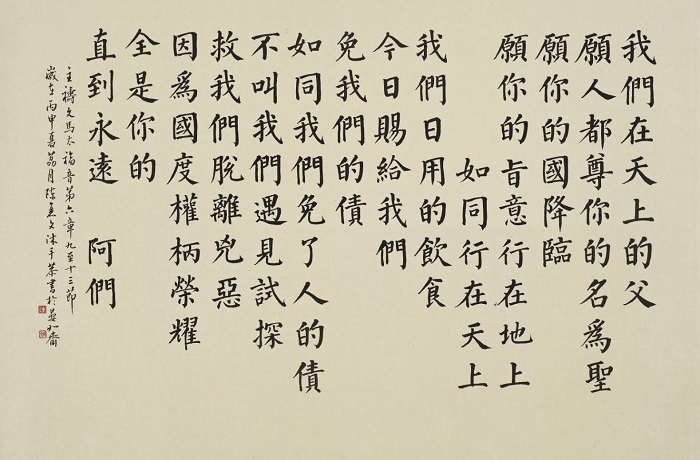 我們在天上的父
願人都尊你的名爲聖
願你的國降臨
願你的旨意行在地上
如同行在天上
我們日用的飲食
今日賜給我們
免我們的債
如同我們免了人的債
不叫我們遇見試探
救我們脫離兇惡
因爲國度權柄榮耀
全是你的
直到永遠 阿們
主禱文馬太福音第六章九至十三節
歲在丙申暮荔月陳 文沐手恭書於 齋